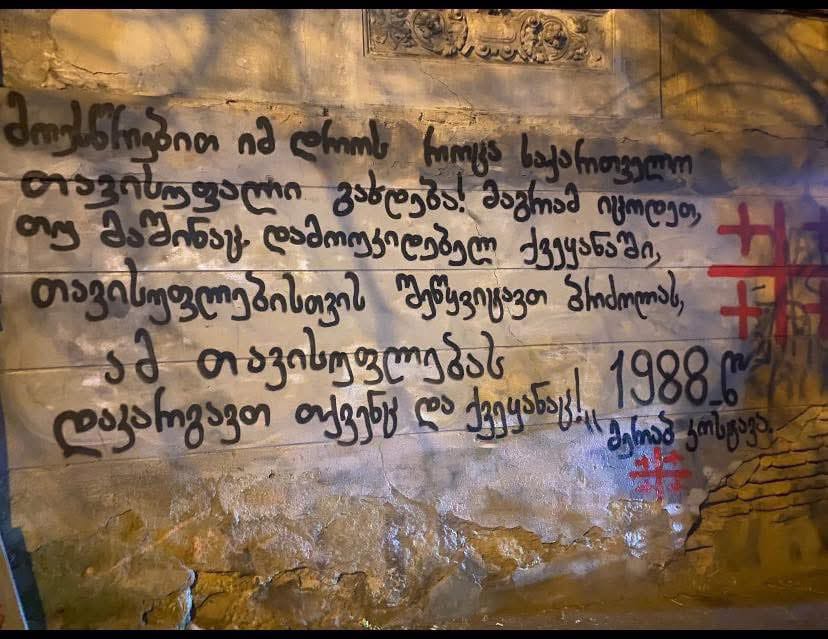 მოესწრებით იმ დროს როცა საქართველო
თავისუფალი გახდება! მაგრამ იცოდეთ,
თუ მაშინაც დამოუკიდებელ ქვეყანაში,
თავისუფლებისთვის შეწყვიტავთ ბრძოლას,
ამ თავისუფლებას
დაკარგავთ თქვენც და ქვეყანაც!"
1988_წ
მერაბ კოსტავა.